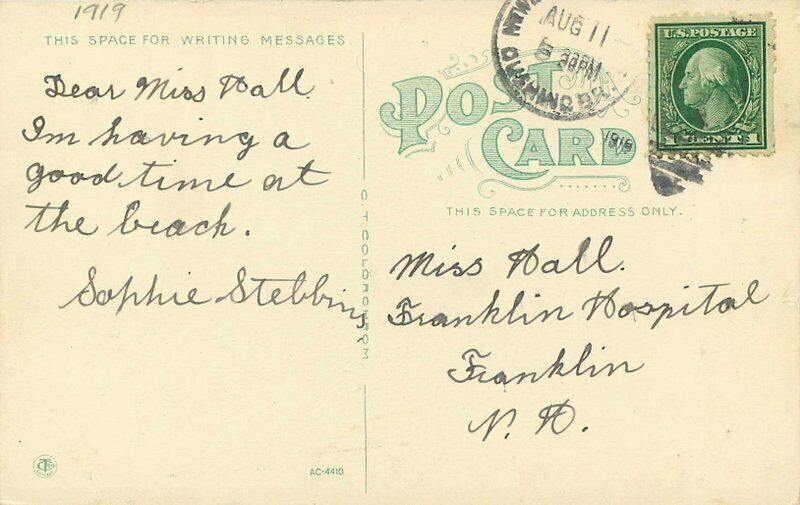 1919
THIS SPACE FOR WRITING MESSAGES.
Dear Miss Hall.
Im having a
good time at
the beach.
Sophie Stebbins
C.T. COLORCHROM
AC-4410
POST
CARD
AUG 11
1919
U.S. POSTAGE
1 CENT 1
THIS SPACE FOR ADDRESS ONLY.
Miss Hall.
Franklin Hospital
Franklin
N. H.